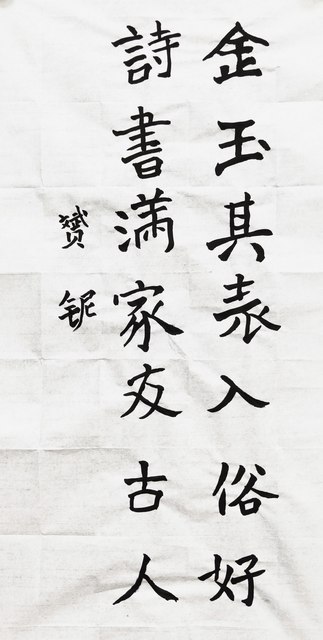 金玉其表入俗好
詩書满家友古人
赟铌